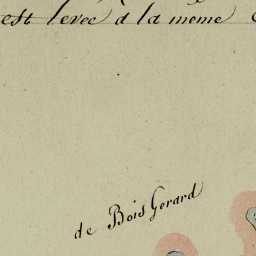 est levée à la même
de Bois Gerard